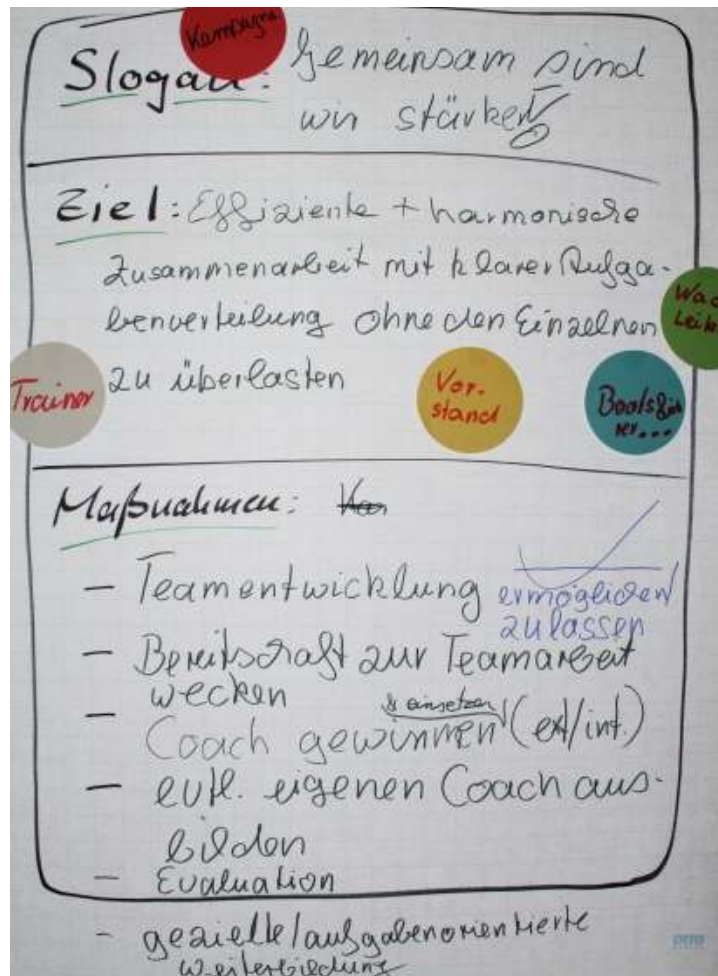 Kampagne
Slogan: Gemeinsam sind
wir stärker!
Ziel: Effiziente + harmonische
Zusammenarbeit mit klarer Aufga-
benverteilung ohne den Einzelnen
zu überlasten
Trainer
Vor-
stand
Maßnahmen:
- Teamentwicklung ermöglichen/
zulassen
- Bereitschaft zur Teamarbeit
wecken
& einsetzen
- Coach gewinnen (ext/int.)
- evtl. eigenen Coach aus-
bilden
- Evaluation
- gezielte/aufgabenorientierte
Weiterbildung